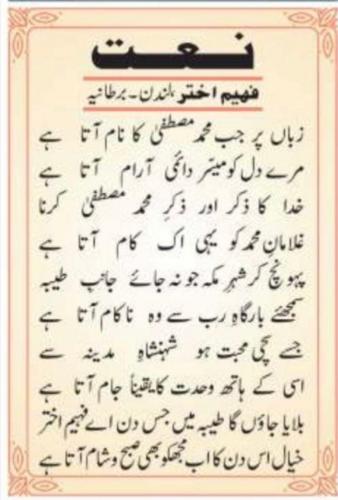 نعت
فہیم اختر لندن۔ برطانیہ
زباں پر جب محمد مصطفیٰ کا نام آتا ہے
مرے دل کو میسّر دائمی آرام آتا ہے
خدا کا ذکر اور ذکرِ محمد مصطفیٰ کرنا
غلامانِ محمد کو یہی اک کام آتا ہے
پہونچ کر شہرِ مکہ جو نہ جائے جانبِ طیبہ
سمجھئے بارگاہِ رب سے وہ ناکام آتا ہے
جسے سچی محبت ہو شہنشاہِ مدینہ سے
اسی کے ہاتھ وحدت کا یقیناً جام آتا ہے
بلایا جاؤں گا طیبہ میں جس دن اے فہیم اختر
خیال اس دن کا اب مجھکو بھی صبح و شام آتا ہے